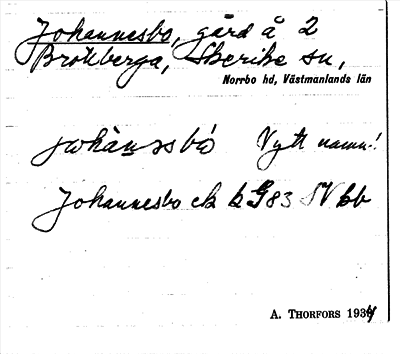 Johannesbo, gård å 2
Brottberga, Skerike sn,
Norrbo hd, Västmanlands län
johànsbó Nytt namn!
Johannesbo ek k G83 SV bb
A. THORFORS 1934